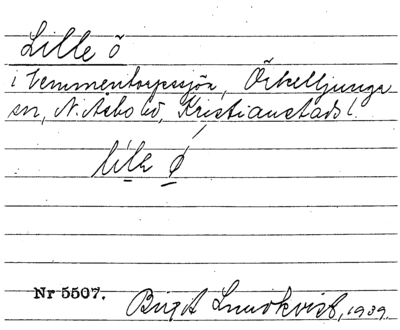 Lille ö
i Vemmentorpssjön, Örkelljunga
sn, N. Åsbo hd, Kristianstads l.
lilə ø
Nr 5507.
Birgit Lundkvist, 1939.